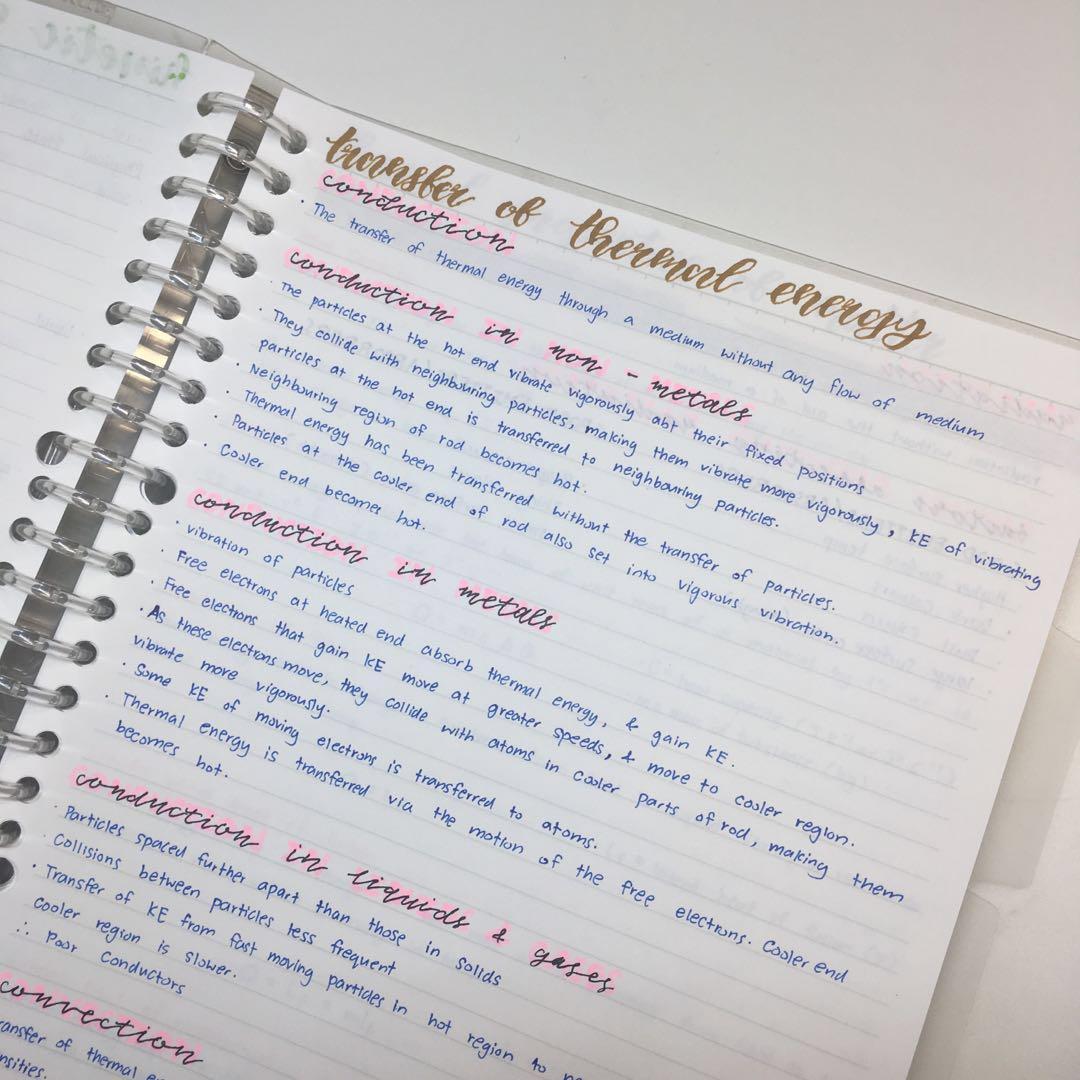 transfer of thermal energy
conduction
· The transfer of thermal energy through a medium without any flow of medium
conduction in non - metals
· The particles at the hot end vibrate vigorously abt their fixed positions
· They collide with neighbouring particles, making them vibrate more vigorously, KE of vibrating
particles at the hot end is transferred to neighbouring particles.
· Neighbouring region of rod becomes hot.
· Thermal energy has been transferred without the transfer of particles.
· Particles at the cooler end of rod also set into vigorous vibration.
· Cooler end becomes hot.
conduction in metals
· vibration of particles
· Free electrons at heated end absorb thermal energy, & gain KE.
· Free electrons that gain KE move at greater speeds, & move to cooler region.
· As these electrons move, they collide with atoms in cooler parts of rod, making them
vibrate more vigorously.
· Some KE of moving electrons is transferred to atoms.
· Thermal energy is transferred via the motion of the free electrons. Cooler end
becomes hot.
conduction in liquids & gases
· Particles spaced further apart than those in solids
· Collisions between particles less frequent
· Transfer of KE from fast moving particles in hot region to
cooler region is slower.
∴ Poor conductors
convection
transfer of thermal